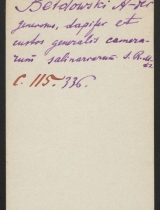 Bełdowski A-der
generosus, dapifer et
custos generalis camera-
rum salinarum S. R. M.
C. 115. 336.